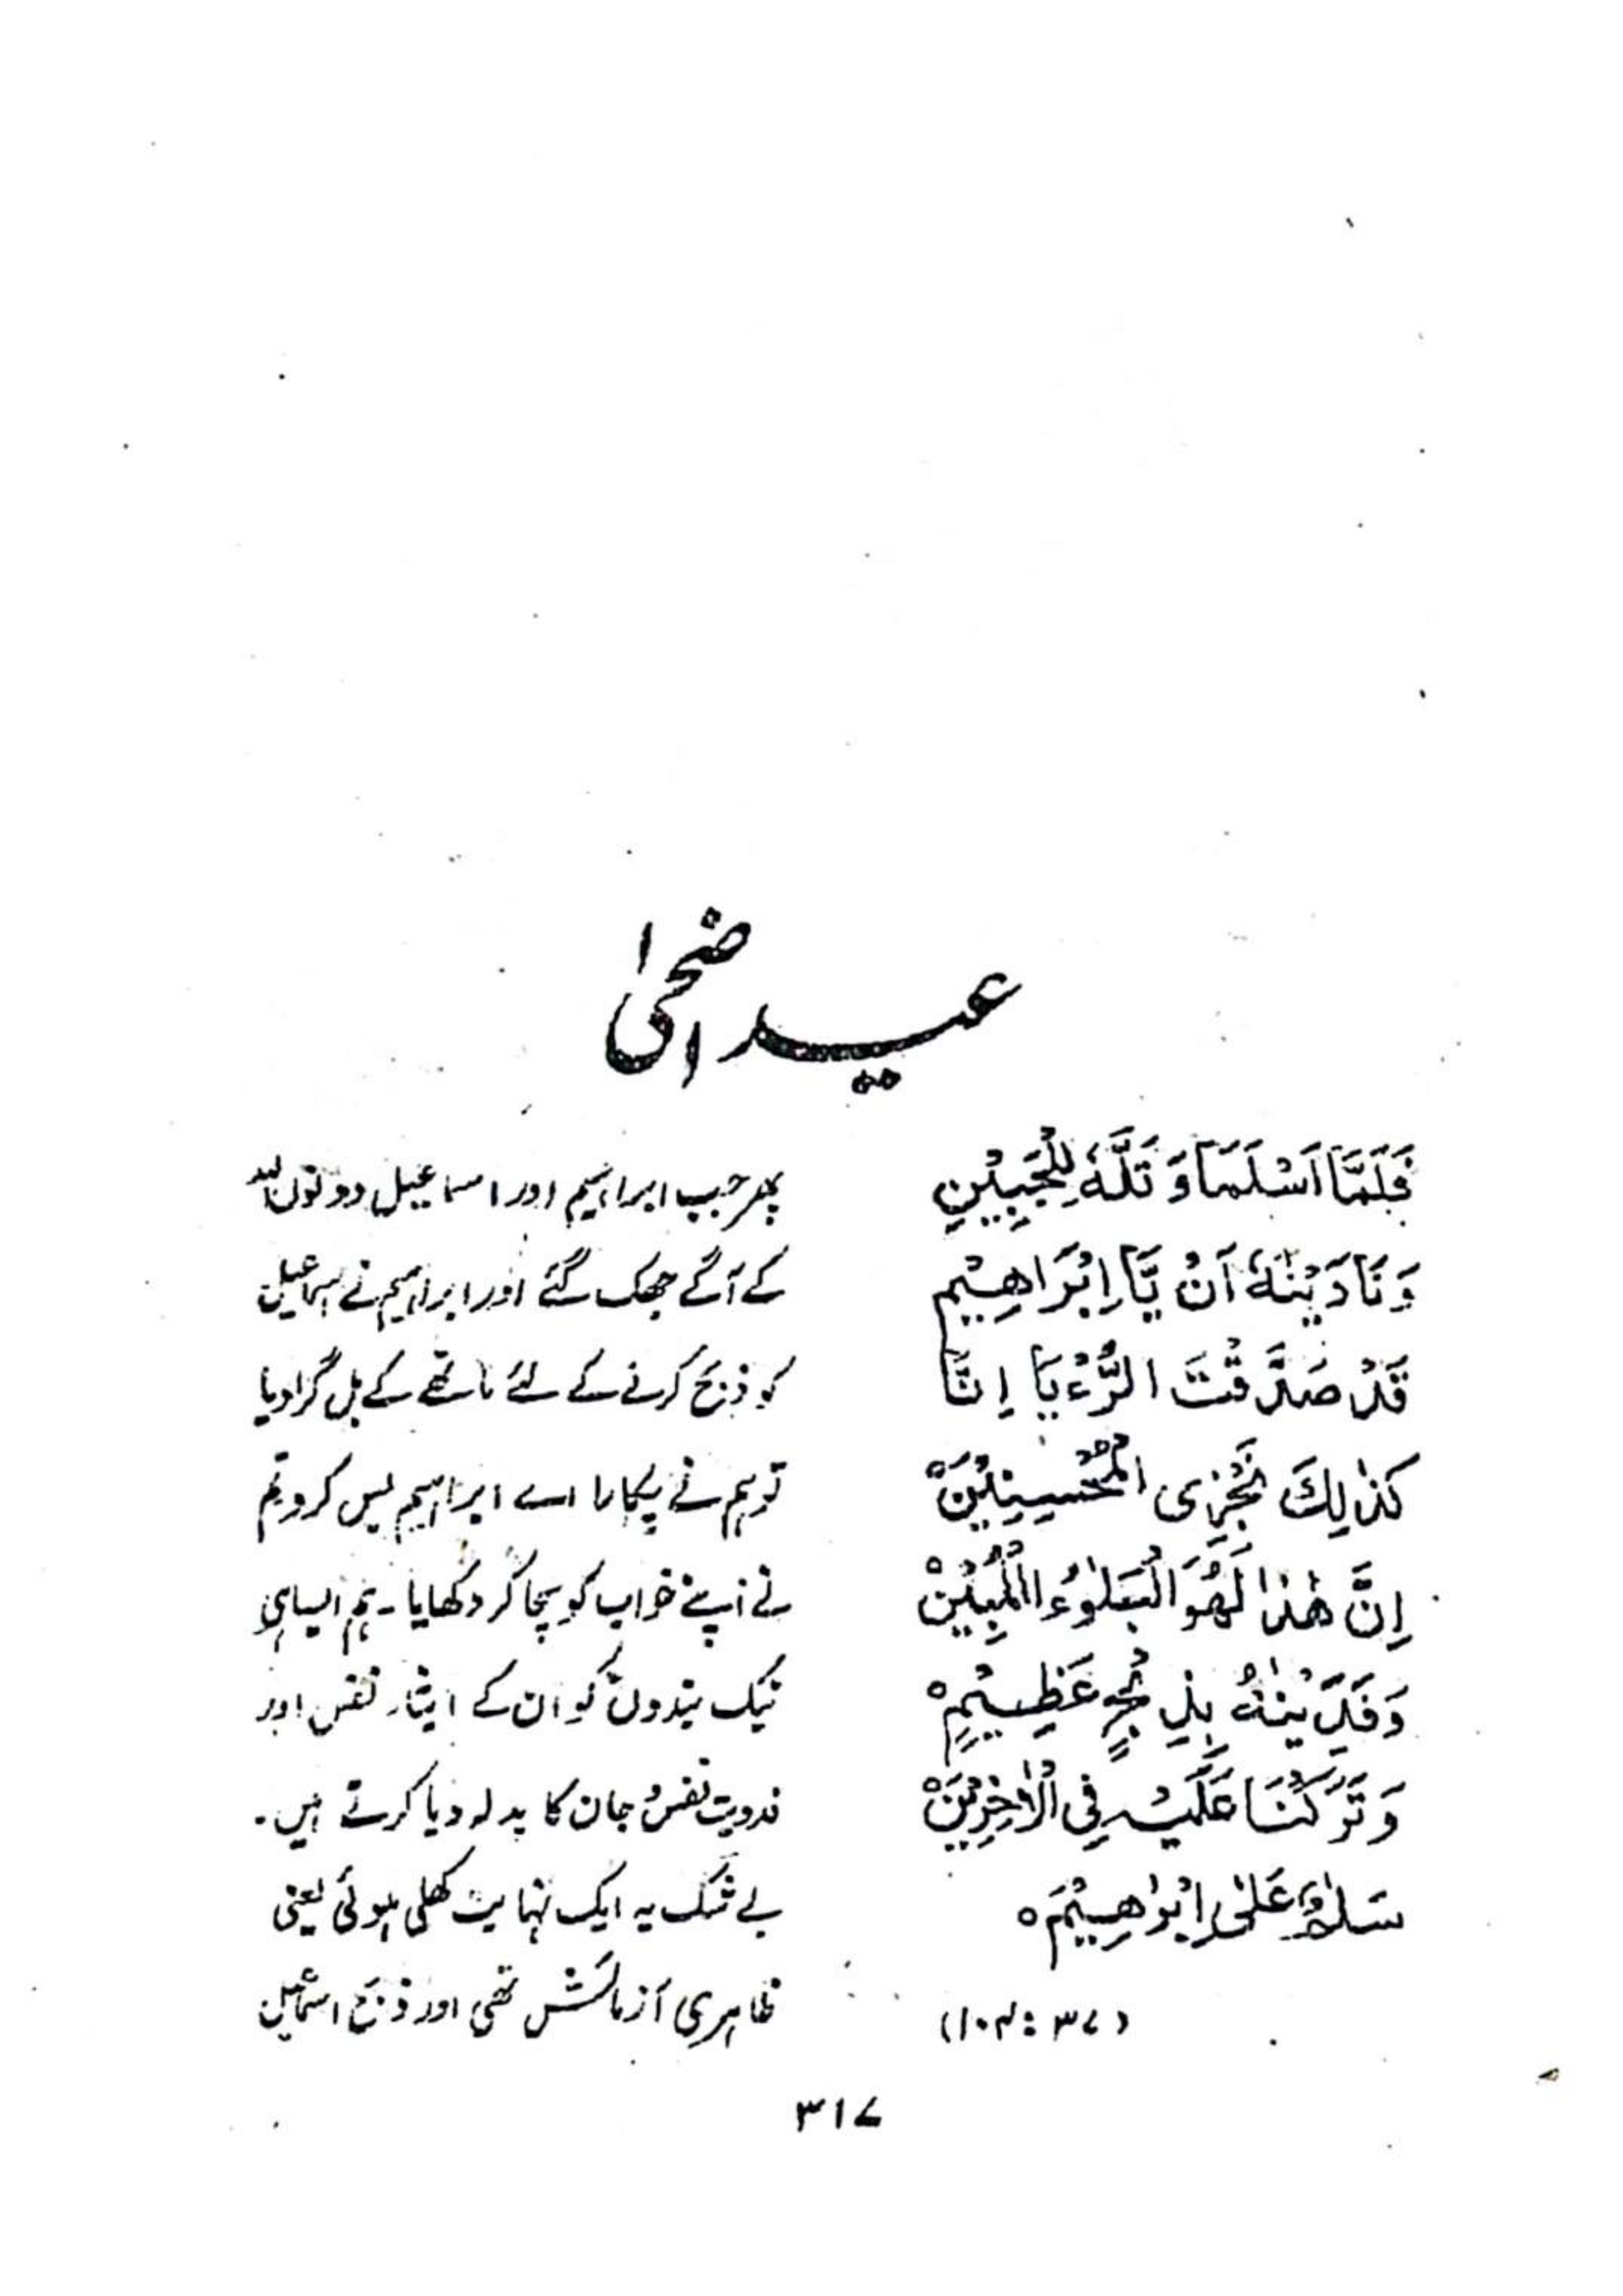 عید اضحیٰ
فَلَمَّا اَسْلَمَا وَ تَلَّهٗ لِلْجَبِیْنِ
وَ نَادَیْنٰهُ اَنْ یَّا اِبْرَاهِیْم
قَدْ صَدَّقْتَ الرُّءْیَا اِنَّا
کَذٰلِكَ نَجْزِی الْمُحْسِنِیْنَ ه
اِنَّ هٰذَا لَهُوَ الْبَلٰوءُ الْمُبِیْنْ ه
وَ فَدَیْنٰهُ بِذِبْحٍ عَظِیْمٍ ه
وَ تَرَكْنَا عَلَیْهِ فِی الْاٰخِرِیْنَ ه
سَلٰمٌ عَلٰی اِبْرٰهِیْمَ ه
(۳۷ : ۱۰۳)
پھر جب ابراہیم اور اسماعیل دونوں اللہ
کے آگے جھک گئے اور ابراہیم نے اسماعیل
کو ذبح کرنے کے لئے ماتھے کے بل گرا دیا
تو ہم نے پکارا اے ابراہیم بس کرو تم
نے اپنے خواب کو سچا کر دکھایا۔ ہم ایسا ہی
نیک بندوں کو ان کے ایثار نفس اور
فدویت نفس و جان کا بدلہ دیا کرتے ہیں۔
بے شک یہ ایک نہایت کھلی ہوئی یعنی
ظاہری آزمائش تھی اور ذبح اسمٰعیل
۳۱۷